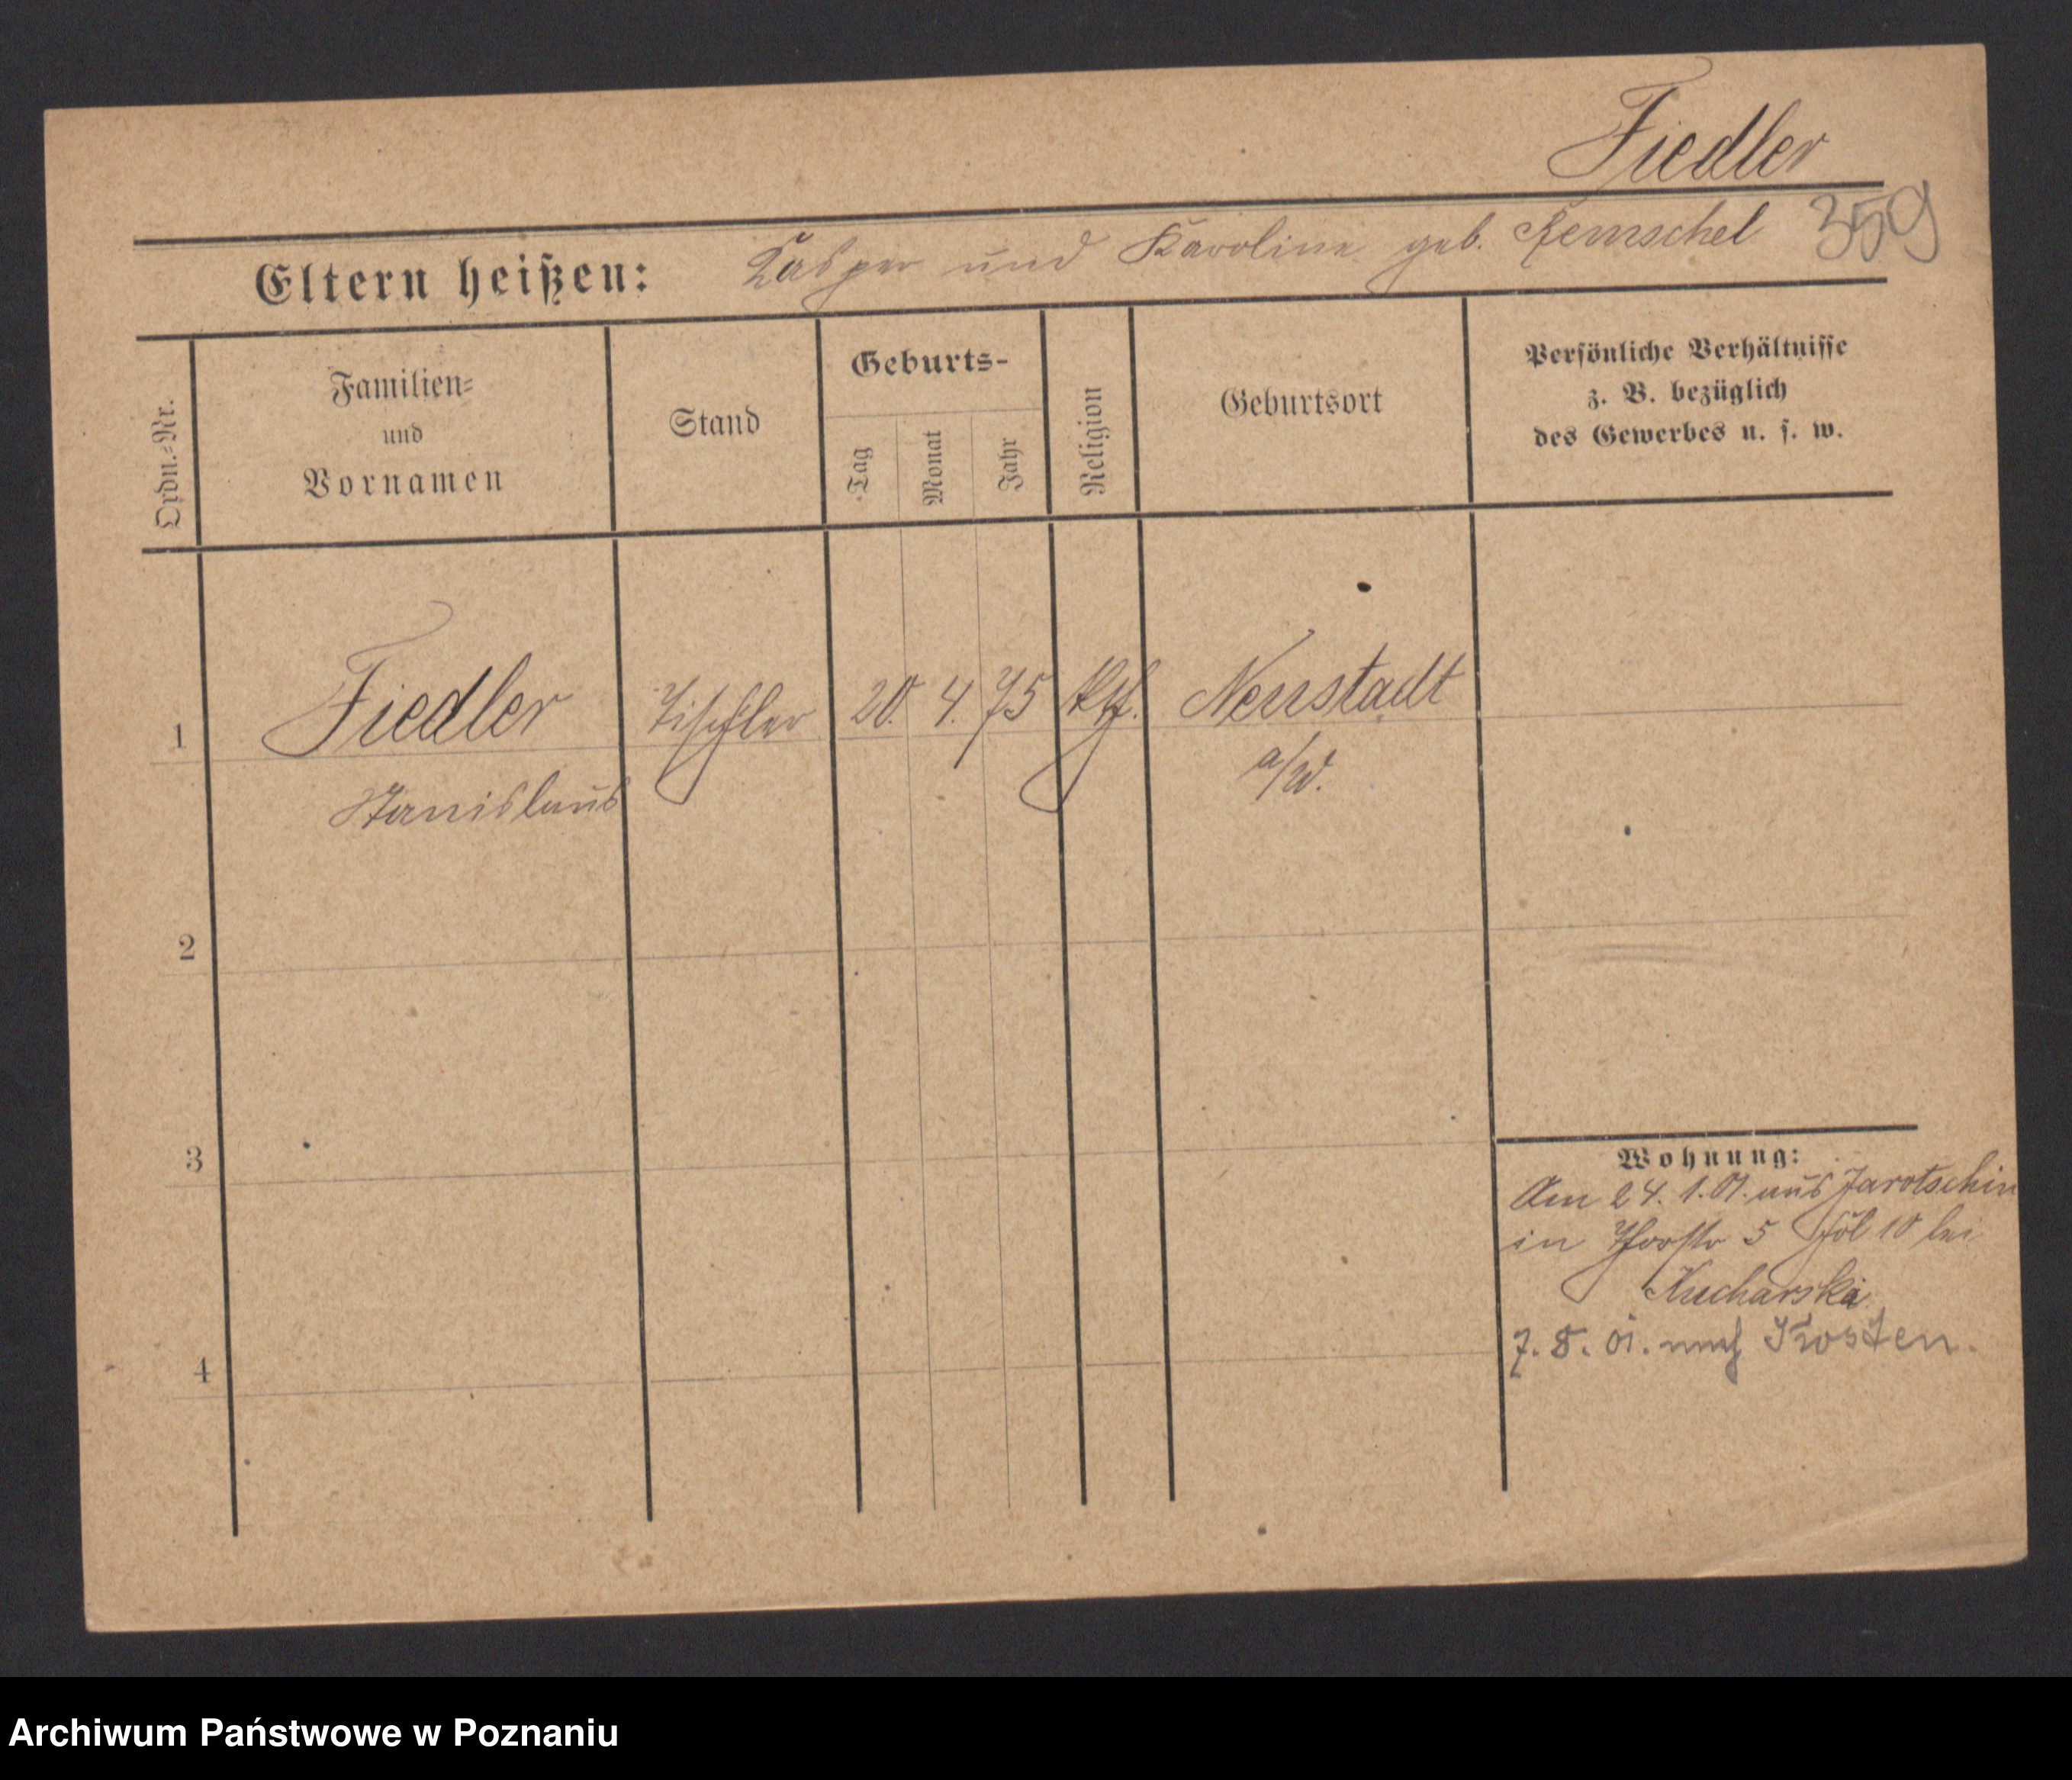 Fiedler
359
Eltern heißen: Kasper und Karoline geb. Remschel
Ordn.-Nr.
Familien-
und
Vornamen
Stand
Geburts-
Tag
Monat
Jahr
Religion
Geburtsort
Persönliche Verhältnisse
z. B. bezüglich
des Gewerbes u. s. w.
1 Fiedler Tischler 20. 4. 75 kth. Neustadt
Stanislaus a/W.
2
3
4
Wohnung:
Am 24. 1. 01. aus Jarotschin
in 5 10 bei
Kucharski
7. 8. 01. nach Kosten.
Archiwum Państwowe w Poznaniu